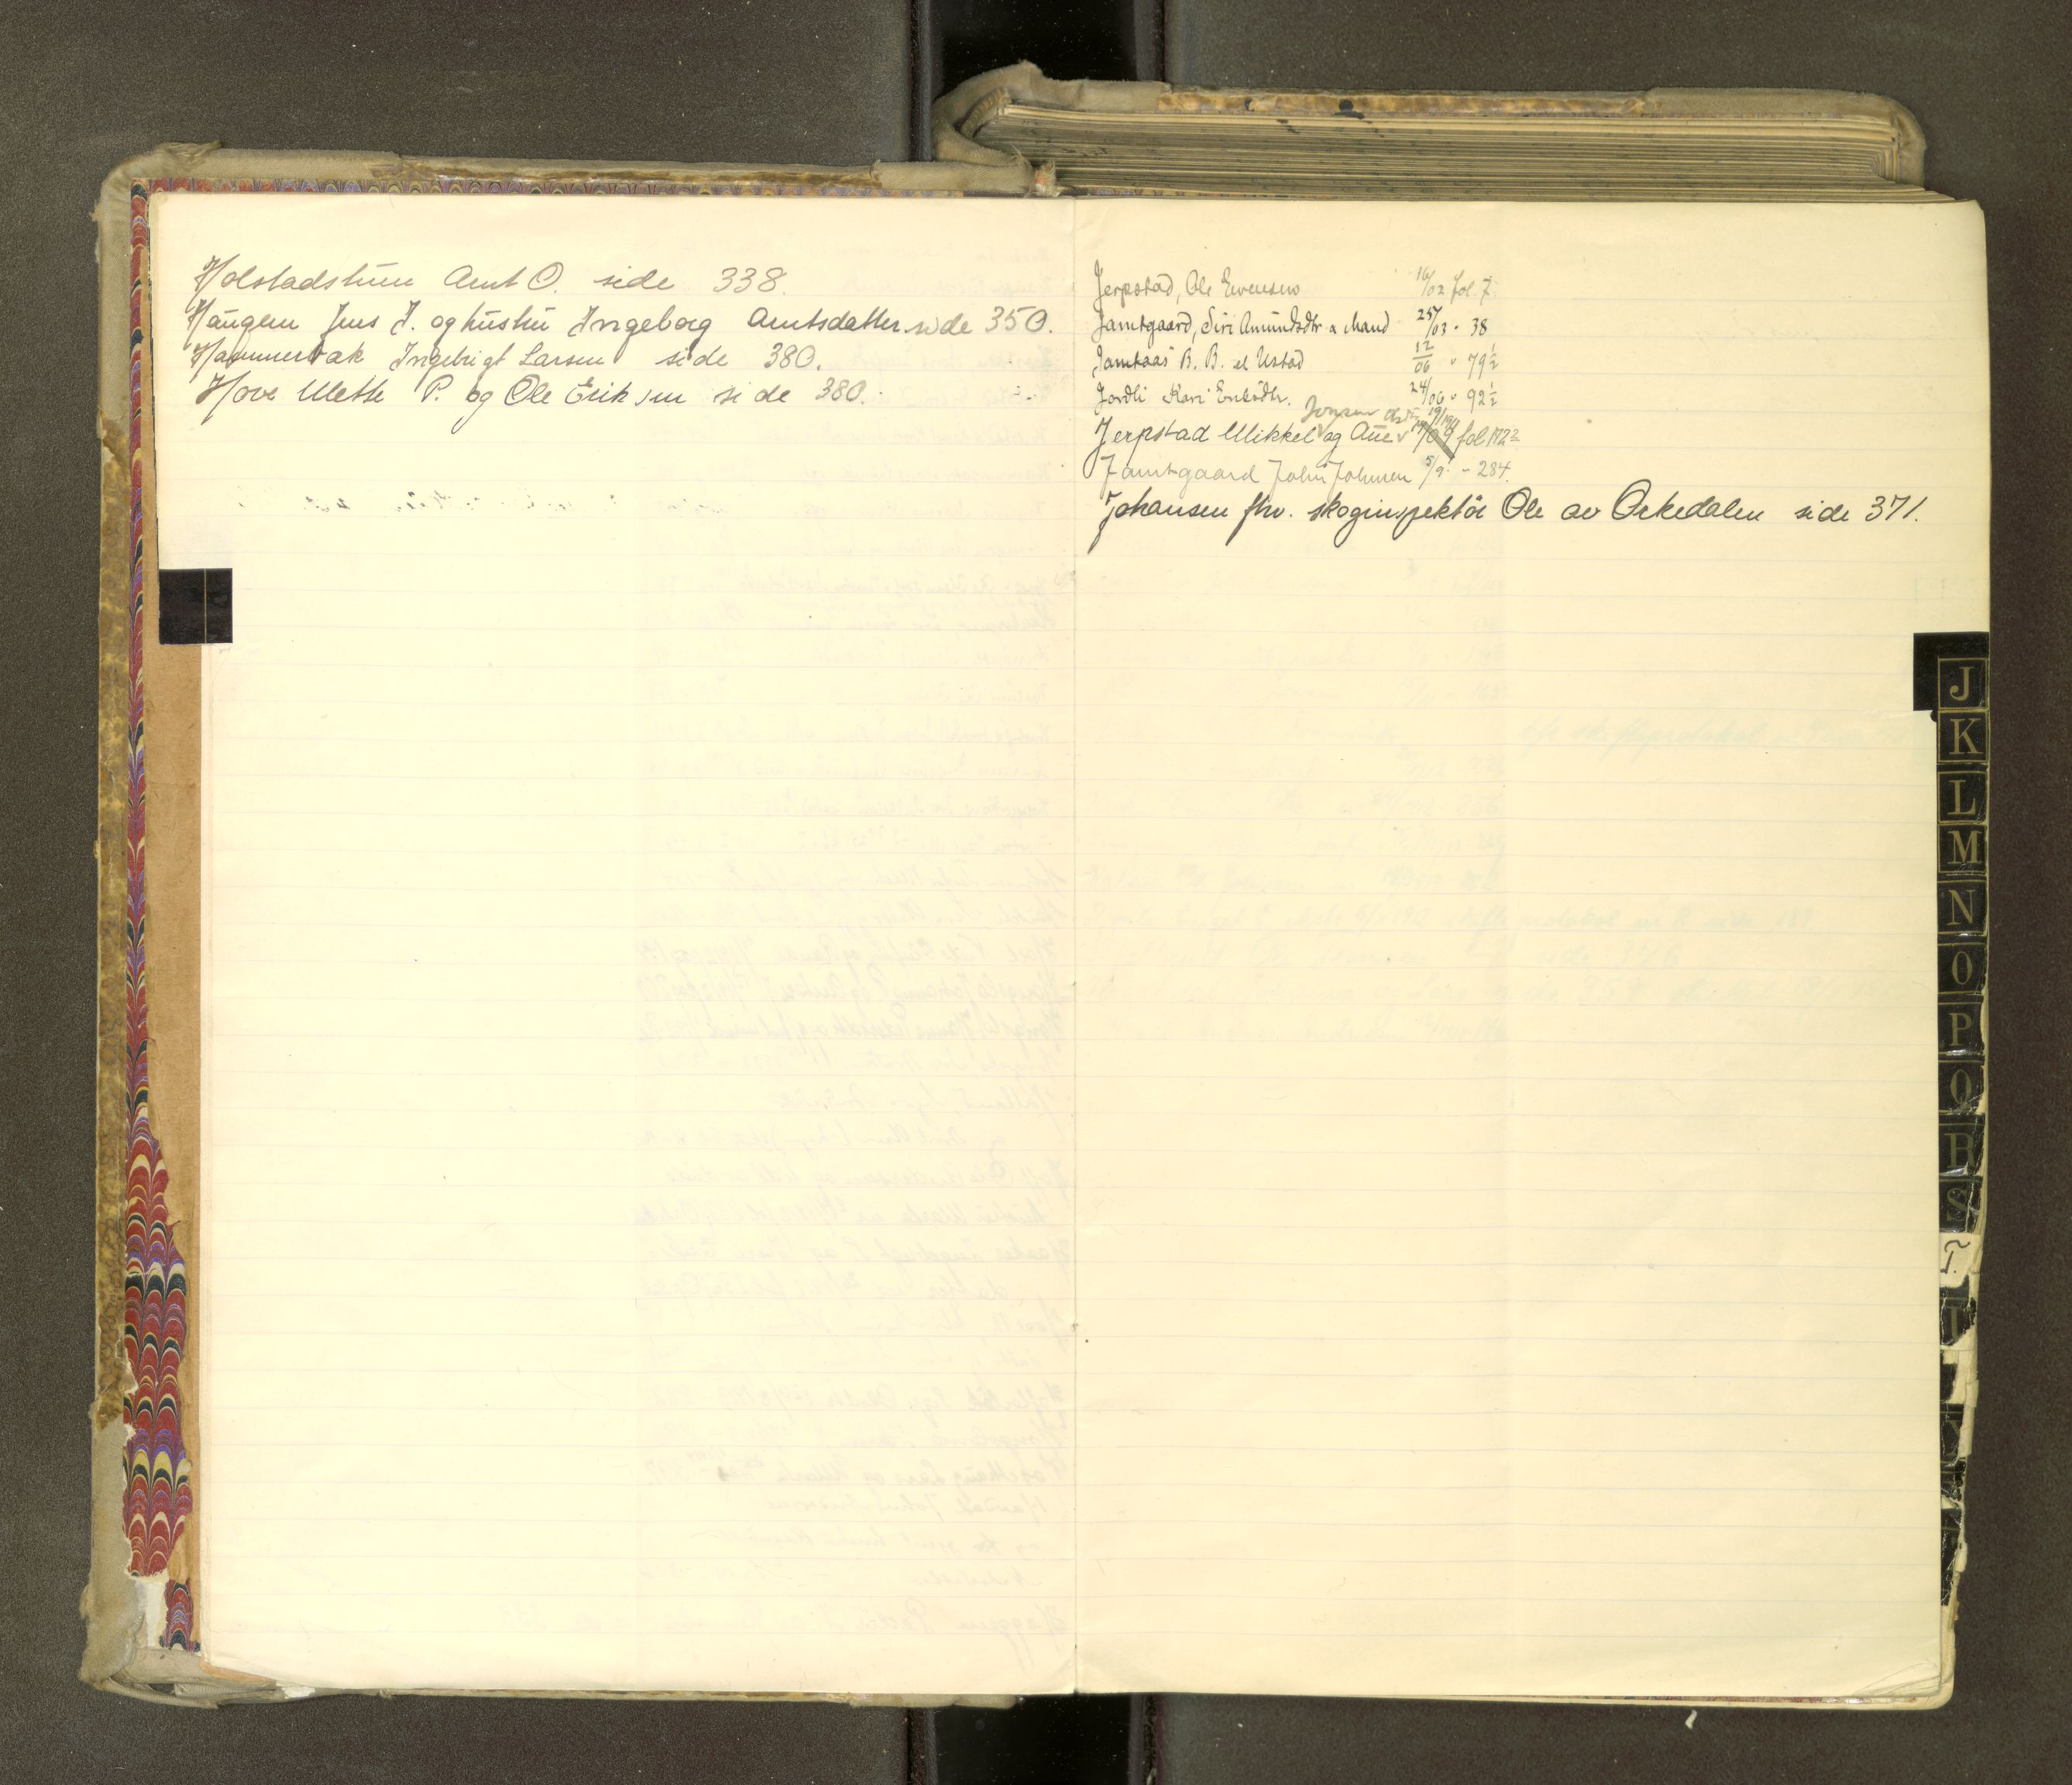 Holstadstuen Arnt O. side 338.
Haugen Jens J. og hustru Ingeborg Arntsdatter side 350.
Hammerbak Ingebrigt Larsen side 380.
Hove Mette P. og Ole Eriksen side 380.
Jerpstad, Ole Evensen 16/02 fol. 7
Jamtgaard, Siri Amundsdtr & Mand 25/03 " 38
Jamtaas B. B. el Ustad 12/06 " 79½
Jordli Kari Eriksdtr. 24/06 " 92½
Jerpstad Mikkel og Ane fol 172½
Jamtgaard John Johnsen 5/9 - 284.
Johansen fhv. skoginspektör Ole av Orkedalen side 371.
J
K
L
M
N
O
P
Q
R
S
T.